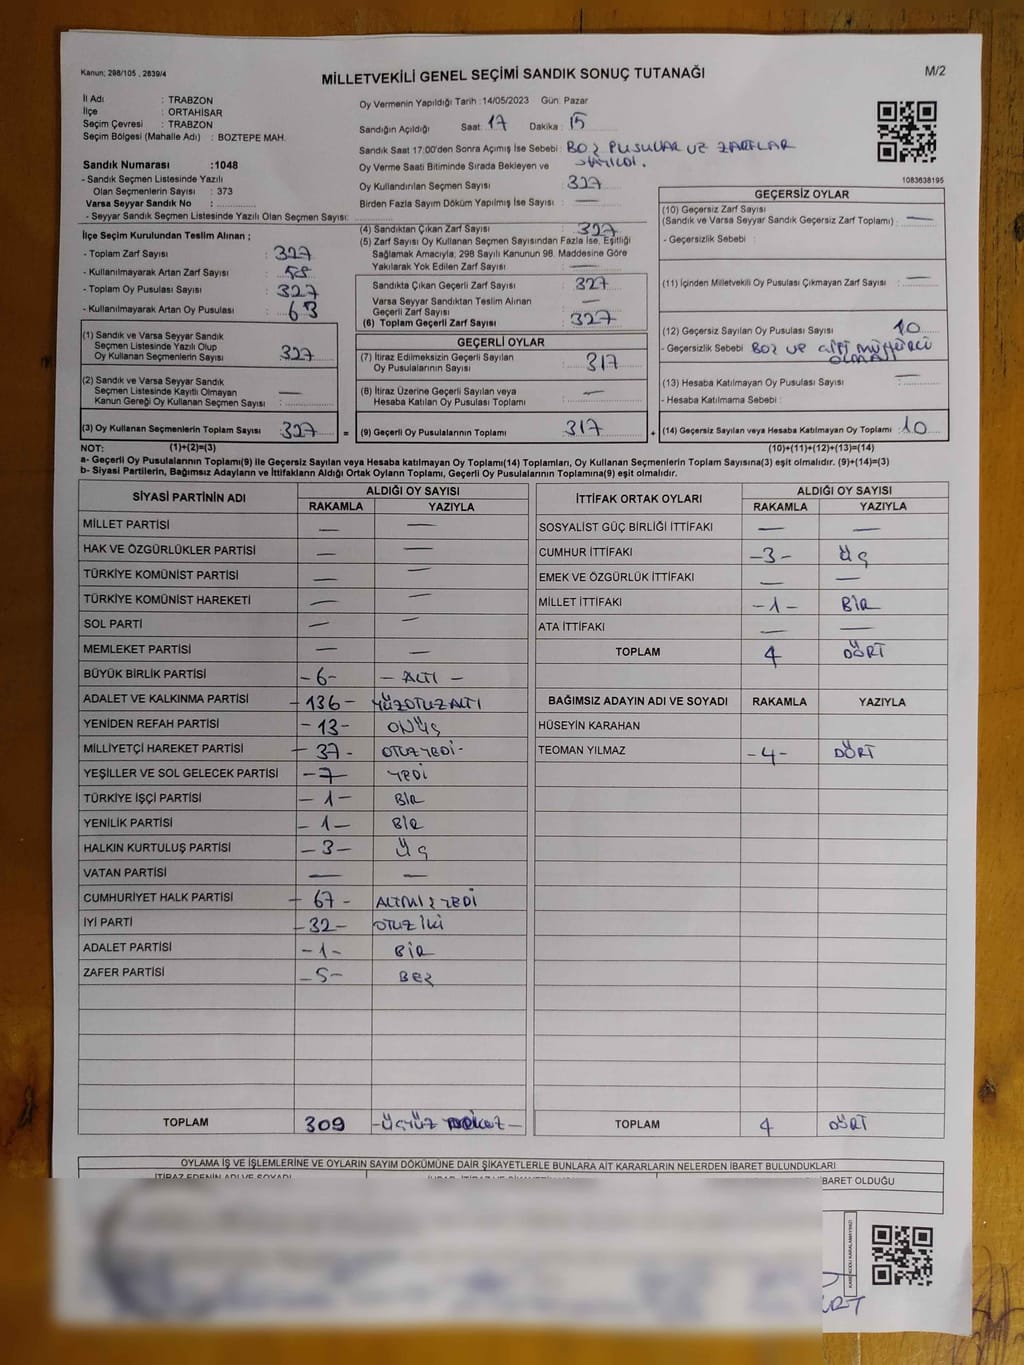 Kanun; 298/105 , 2839/4
MİLLETVEKİLİ GENEL SEÇİMİ SANDIK SONUÇ TUTANAĞI
M/2
İl Adı : TRABZON
İlçe : ORTAHİSAR
Seçim Çevresi : TRABZON
Seçim Bölgesi (Mahalle Adı) : BOZTEPE MAH.
Sandık Numarası :1048
- Sandık Seçmen Listesinde Yazılı
Olan Seçmenlerin Sayısı : 373
Varsa Seyyar Sandık No :
- Seyyar Sandık Seçmen Listesinde Yazılı Olan Seçmen Sayısı:
Oy Vermenin Yapıldığı Tarih :14/05/2023 Gün: Pazar
Sandığın Açıldığı Saat: 17 Dakika : 15
Sandık Saat 17:00'den Sonra Açımış İse Sebebi : BOŞ PUSULLAR VE ZARFLAR
SAYILDI.
Oy Verme Saati Bitiminde Sırada Bekleyen ve
Oy Kullandırılan Seçmen Sayısı : 327
Birden Fazla Sayım Döküm Yapılmış İse Sayısı : —
1083638195
İlçe Seçim Kurulundan Teslim Alınan ;
- Toplam Zarf Sayısı : 327
- Kullanılmayarak Artan Zarf Sayısı : 58
- Toplam Oy Pusulası Sayısı : 327
- Kullanılmayarak Artan Oy Pusulası : 63
(1) Sandık ve Varsa Seyyar Sandık
Seçmen Listesinde Yazılı Olup
Oy Kullanan Seçmenlerin Sayısı : 327
(2) Sandık ve Varsa Seyyar Sandık
Seçmen Listesinde Kayıtlı Olmayan
Kanun Gereği Oy Kullanan Seçmen Sayısı : —
(3) Oy Kullanan Seçmenlerin Toplam Sayısı : 327 =
(4) Sandıktan Çıkan Zarf Sayısı : 327
(5) Zarf Sayısı Oy Kullanan Seçmen Sayısından Fazla İse, Eşitliği
Sağlamak Amacıyla; 298 Sayılı Kanunun 98. Maddesine Göre
Yakılarak Yok Edilen Zarf Sayısı : —
Sandıkta Çıkan Geçerli Zarf Sayısı : 327
Varsa Seyyar Sandıktan Teslim Alınan
Geçerli Zarf Sayısı : —
(6) Toplam Geçerli Zarf Sayısı : 327
GEÇERLİ OYLAR
(7) İtiraz Edilmeksizin Geçerli Sayılan
Oy Pusulalarının Sayısı : 317
(8) İtiraz Üzerine Geçerli Sayılan veya
Hesaba Katılan Oy Pusulası Toplamı : —
(9) Geçerli Oy Pusulalarının Toplamı : 317 +
GEÇERSİZ OYLAR
(10) Geçersiz Zarf Sayısı
(Sandık ve Varsa Seyyar Sandık Geçersiz Zarf Toplamı) : —
- Geçersizlik Sebebi :
(11) İçinden Milletvekili Oy Pusulası Çıkmayan Zarf Sayısı : —
(12) Geçersiz Sayılan Oy Pusulası Sayısı : 10
- Geçersizlik Sebebi : BOŞ VE ÇİFT MÜHÜRLÜ
OLMA
(13) Hesaba Katılmayan Oy Pusulası Sayısı : —
- Hesaba Katılmama Sebebi :
(14) Geçersiz Sayılan veya Hesaba Katılmayan Oy Toplamı : 10
NOT: (1)+(2)=(3) (10)+(11)+(12)+(13)=(14)
a- Geçerli Oy Pusulalarının Toplamı(9) ile Geçersiz Sayılan veya Hesaba katılmayan Oy Toplamı(14) Toplamları, Oy Kullanan Seçmenlerin Toplam Sayısına(3) eşit olmalıdır. (9)+(14)=(3)
b- Siyasi Partilerin, Bağımsız Adayların ve İttifakların Aldığı Ortak Oyların Toplamı, Geçerli Oy Pusulalarının Toplamına(9) eşit olmalıdır.
SİYASİ PARTİNİN ADI ALDIĞI OY SAYISI
RAKAMLA YAZIYLA
MİLLET PARTİSİ — —
HAK VE ÖZGÜRLÜKLER PARTİSİ — —
TÜRKİYE KOMÜNİST PARTİSİ — —
TÜRKİYE KOMÜNİST HAREKETİ — —
SOL PARTİ — —
MEMLEKET PARTİSİ — —
BÜYÜK BİRLİK PARTİSİ -6- - ALTI -
ADALET VE KALKINMA PARTİSİ -136- YÜZOTUZALTI
YENİDEN REFAH PARTİSİ -13- ONÜÇ
MİLLİYETÇİ HAREKET PARTİSİ -37- OTUZYEDİ-
YEŞİLLER VE SOL GELECEK PARTİSİ -7- YEDİ
TÜRKİYE İŞÇİ PARTİSİ -1- BİR
YENİLİK PARTİSİ -1- BİR
HALKIN KURTULUŞ PARTİSİ -3- ÜÇ
VATAN PARTİSİ — —
CUMHURİYET HALK PARTİSİ -67- ALTMIŞYEDİ
İYİ PARTİ -32- OTUZİKİ
ADALET PARTİSİ -1- BİR
ZAFER PARTİSİ -5- BEŞ
TOPLAM 309 -ÜÇYÜZ DOKUZ-
İTTİFAK ORTAK OYLARI ALDIĞI OY SAYISI
RAKAMLA YAZIYLA
SOSYALİST GÜÇ BİRLİĞİ İTTİFAKI — —
CUMHUR İTTİFAKI -3- ÜÇ
EMEK VE ÖZGÜRLÜK İTTİFAKI — —
MİLLET İTTİFAKI -1- BİR
ATA İTTİFAKI — —
TOPLAM 4 DÖRT
BAĞIMSIZ ADAYIN ADI VE SOYADI RAKAMLA YAZIYLA
HÜSEYİN KARAHAN
TEOMAN YILMAZ -4- DÖRT
TOPLAM 4 DÖRT
OYLAMA İŞ VE İŞLEMLERİNE VE OYLARIN SAYIM DÖKÜMÜNE DAİR ŞİKAYETLERLE BUNLARA AİT KARARLARIN NELERDEN İBARET BULUNDUKLARI
İTİRAZ EDENİN ADI VE SOYADI
BARET OLDUĞU